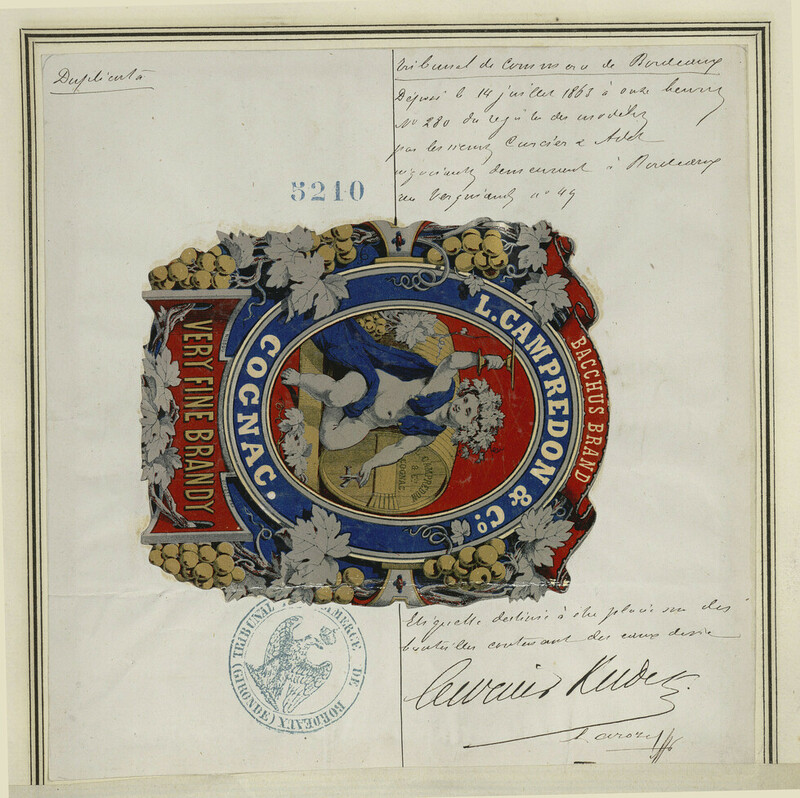 Duplicata
Tribunal de Commerce de Bordeaux
Déposé le 14 juillet 1863 à onze heures
N° 230 du registre des modèles
par les sieurs &
négociants demeurant à Bordeaux
rue n° 49
5210
BACCHUS BRAND
L. CAMPREDON & Co.
COGNAC.
CAMPREDON
& Co
COGNAC
VERY FINE BRANDY
Etiquette destinée à être placée sur des
bouteilles contenant des eaux de vie
TRIBUNAL DE COMMERCE DE BORDEAUX (GIRONDE)